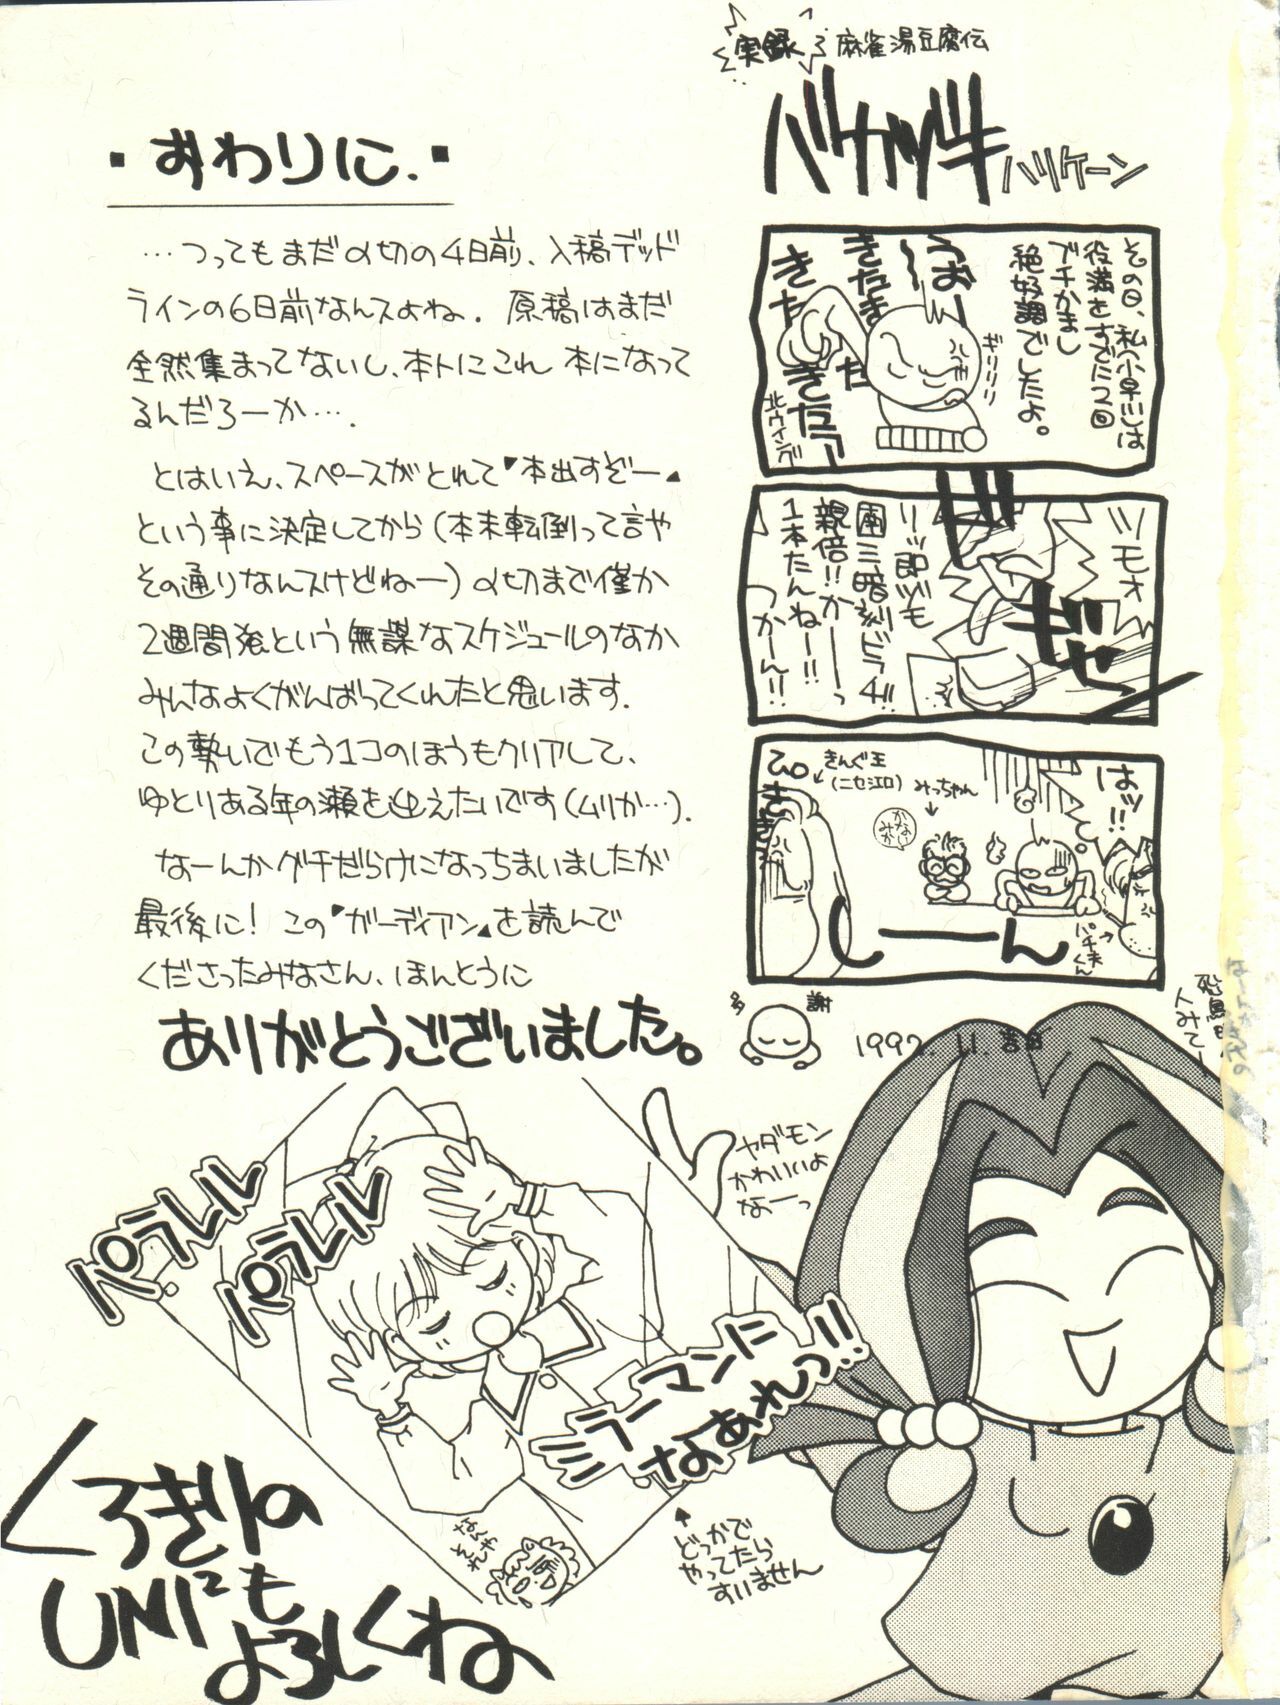 ・おわりに.・
…つってもまだ〆切の4日前、入稿デッド
ラインの6日前なんスよね. 原稿はまだ
全然集まってないし、本トにこれ 本になって
るんだろーか…
とはいえ、スペースがとれて「本出すぞー」
という事に決定してから(本末転倒って言や
その通りなんスけどねー)〆切まで僅か
2週間発という無謀なスケジュールのなか
みんなよくがんばってくれたと思います.
この勢いでもう1コのほうもクリアして、
ゆとりある年の瀬を迎えたいです(ムリか…).
なーんかグチだらけになっちまいましたが
最後に! この「ガーディアン」を読んで
くださったみなさん、ほんとうに
ありがとうございました。
多謝
1992.11.
実録
麻雀湯豆腐伝
バカヅキ
ハリケーン
その日、私小早川は
役満をすでに2回
ブチかまし
絶好調でしたよ。
うおー
きたきた
きたきたー
ギリリリ
北ウイング
ツモォ
リーッ即ヅモ
南三暗刻ドラ4!!
親倍!!かーっ
1本たんねー!!
つかーん!!
ギャン
はッ!!
きんぐ王
(ニセ江口)
みっちゃん
かない
みか
パチ夫くん
しーーん
ヤダモン
かわいいよ
なーっ
パラレル
パラレル
ミラーマンに
なあれっ!!
↑
どっかで
やってたら
すいません
なんや
それや
くろきりの
UNI²も
よろしくね